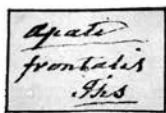 apate
frontalis
Ths